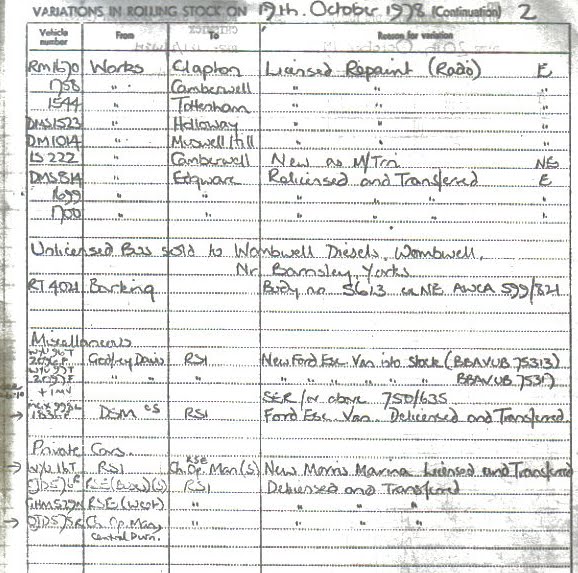 VARIATIONS IN ROLLING STOCK ON 19th. October. 1978 (Continuation) 2
Vehicle number From To Reason for variation
RM1670 Works Clapton Licensed Repaint (Radio) E
1758 " Camberwell " " "
1544 " Tottenham " " "
DMS1523 " Holloway " " "
DM1014 " Muswell Hill " " "
LS222 " Camberwell New as M/Trn NS
DMS814 " Edgware Relicensed and Transferred E
1699 " " " " "
1700 " " " " "
Unlicensed Bus sold to Wombwell Diesels, Wombwell,
Nr. Barnsley, Yorks
RT4021 Barking Body no 5613 AWCA 599/321
Miscellaneous
Geofrey Davis RSI New Ford Esc. Van into Stock (BBAVUB 75313)
" " " " " " " " BBAVUB 75317
+ 1MV SER for above 750/635
DSM cs RSI Ford Esc. Van. Delicensed and Transferred.
Private Cars.
RSE
RSI Ch. Op. Man (S) New Morris Marina Licensed and Transferred
RSE (East)(S) RSI Delicensed and Transferred
GHM529N RSE (West) " " " "
OJD575R Ch. Op. Man " " " "
Central Divn.